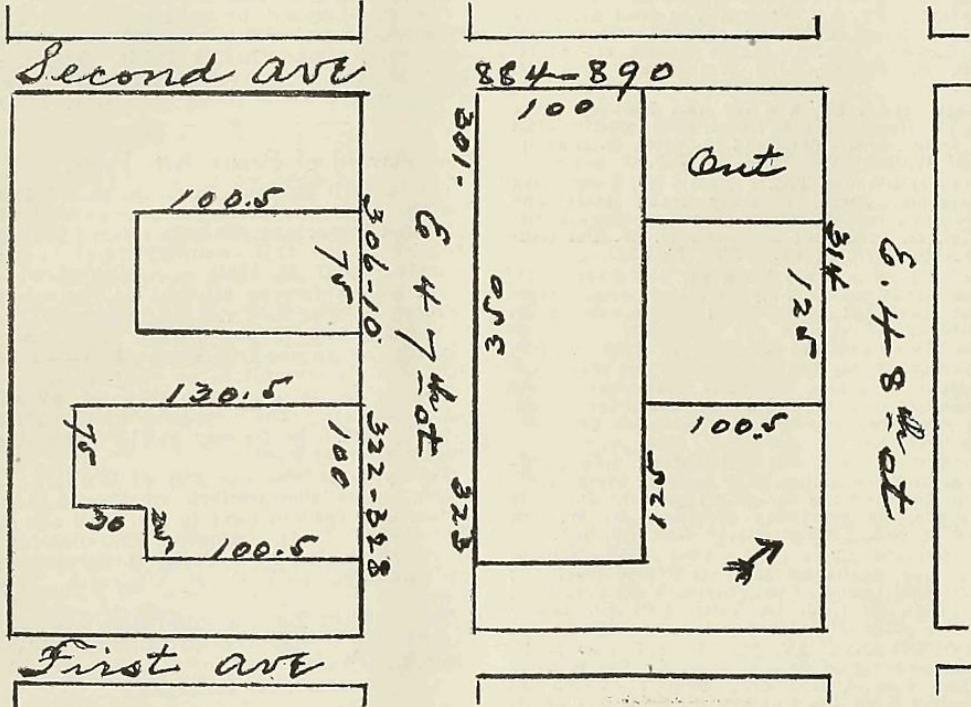 Second ave
884-890
100
301-
Out
100.5
306-10
75
E 47th st
350
314
125
E. 48th st
130.5
75
100
322-328
30
25
100.5
323
125
100.5
First ave